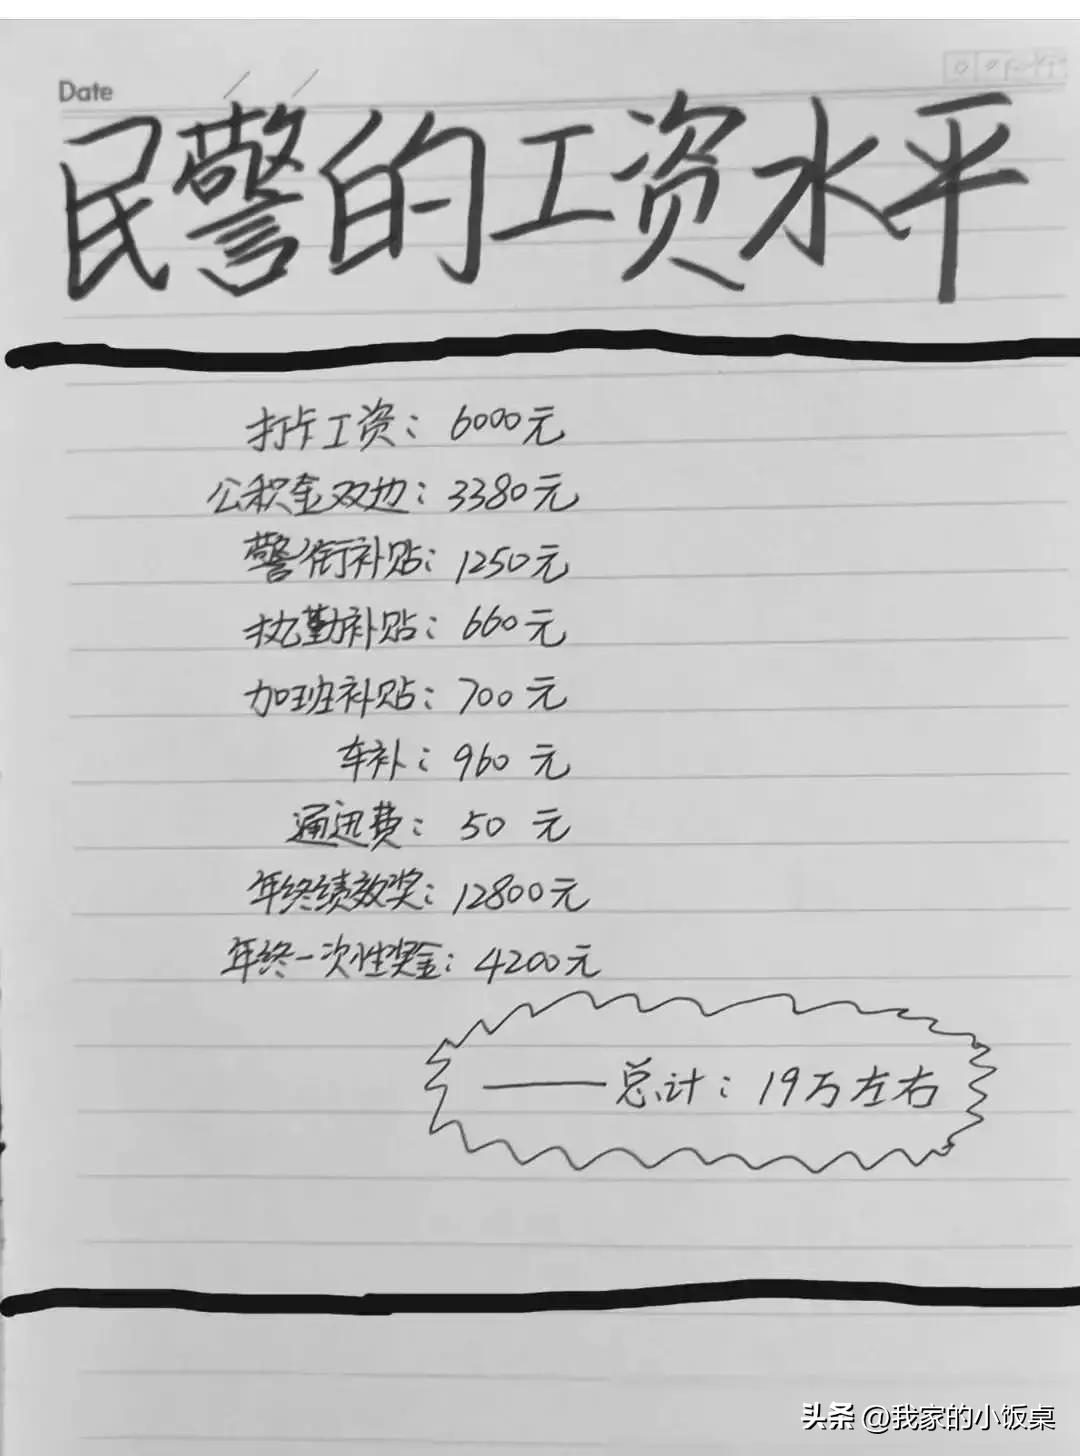 Date
民警的工资水平
打卡工资：6000元
公积金双边：3380元
警衔补贴：1250元
执勤补贴：660元
加班补贴：700元
车补：960元
通迅费：50元
年终绩效奖：12800元
年终一次性奖金：4200元
——总计：19万左右
头条 @我家的小饭桌